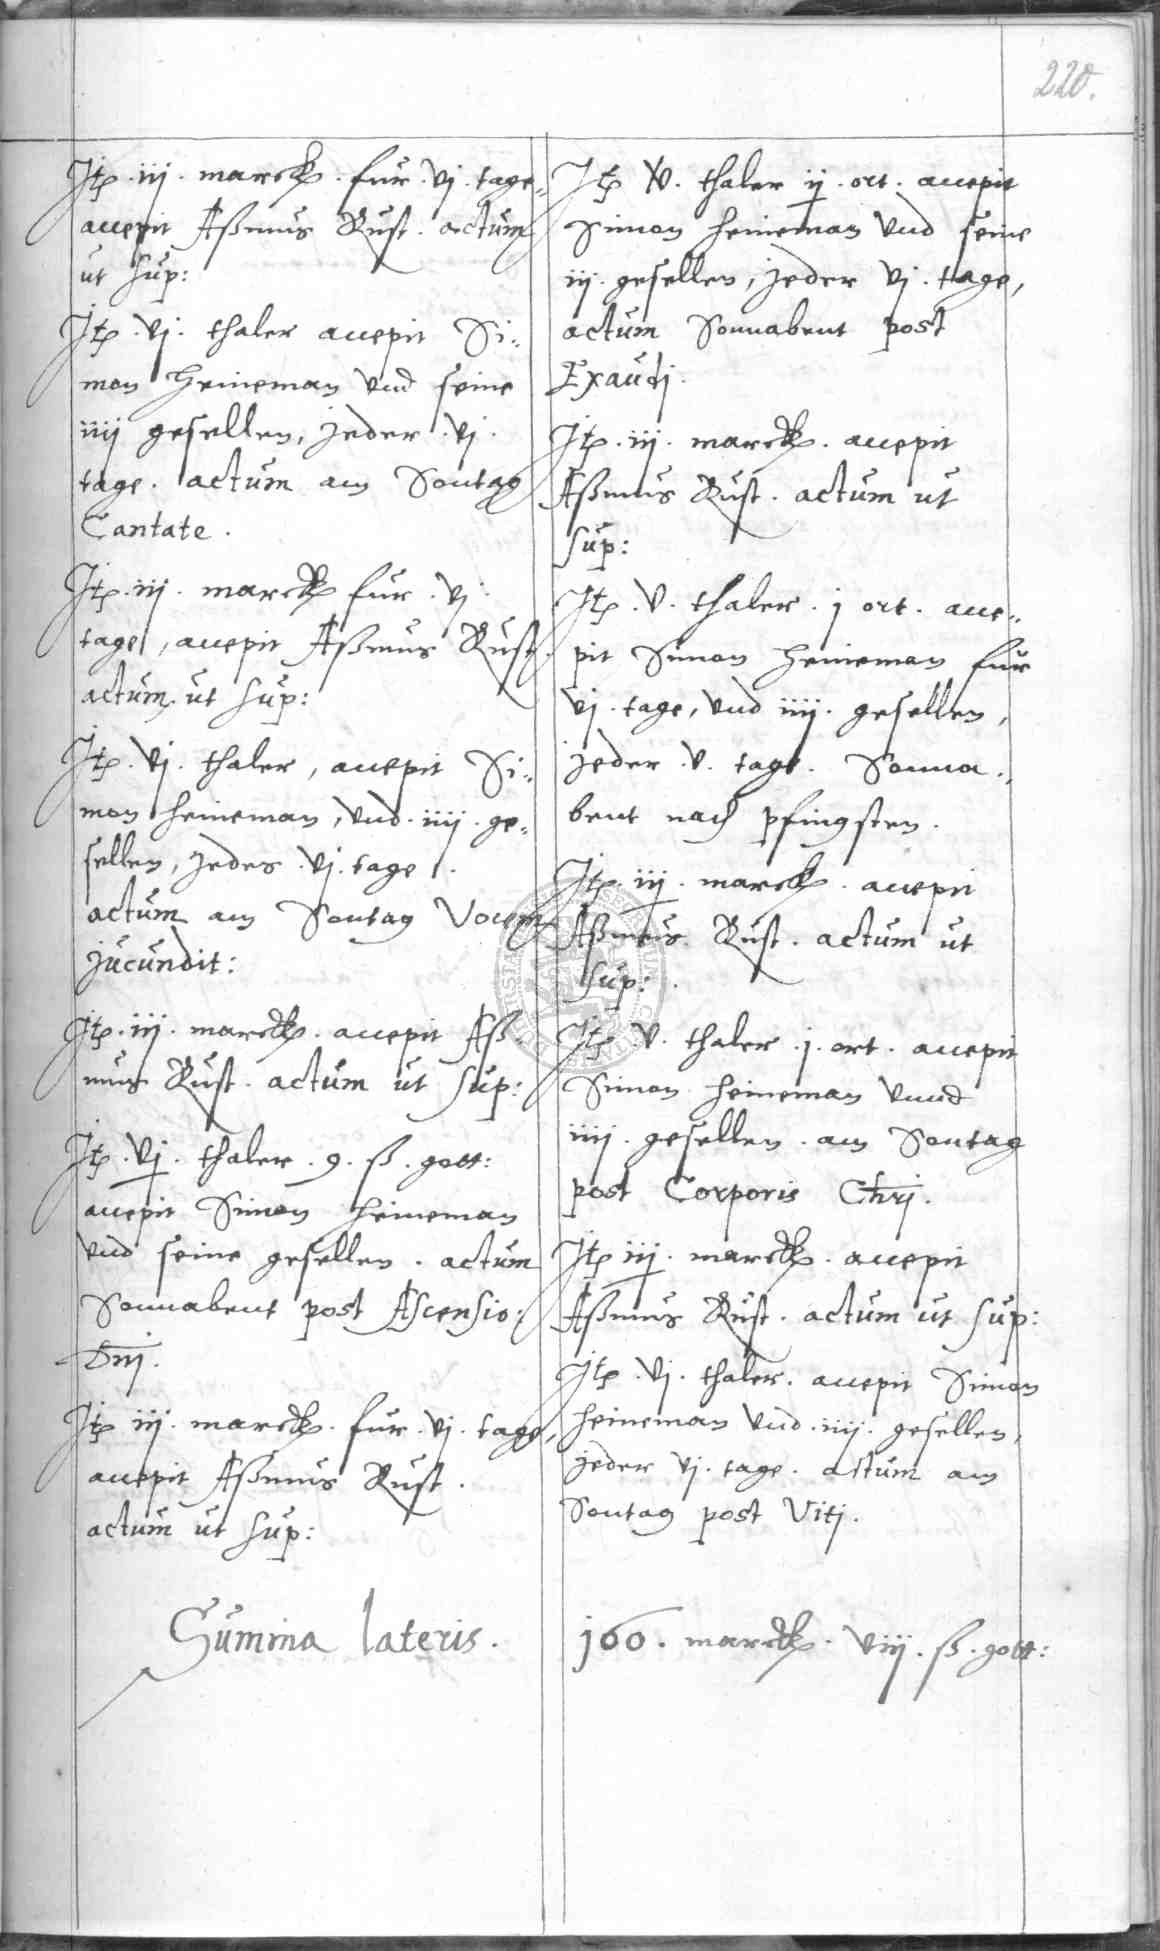 220.
Itp. iij. marck. fur. vj. tage,
accepit Aßmus Rust. actum
ut sup:
Itp. vj. thaler accepit Si=
mon Heineman vnd seine
iiij gesellen, jeder. vj.
tage. actum am Sontag
Cantate.
Itp. iij. marck fur. vj.
tage, accepit Aßmus Rust.
actum ut sup:
Itp. vj. thaler, accepit Si=
mon Heineman, vnd. iiij. ge=
sellen, jeder. vj. tage.
actum am Sontag Vocem
jucundit:
Itp. iij. marck. accepit Aß
mus Rust. actum ut sup:
Itp. vj. thaler. 9. ß. gott:
accepit Simon Heineman
vnd seine gesellen. actum
Sonnabent post Ascensio:
Dnj.
Itp iij. marck. fur. vj. tage,
accepit Aßmus Rust.
actum ut sup:
Itp v. thaler ij. ort. accepit
Simon Heineman vnd seine
iij. gesellen, jeder vj. tage,
actum Sonnabent post
Exaudj.
Itp. iij. marck. accepit
Aßmus Rust. actum ut
sup:
Itp. v. thaler. j ort. acce=
pit Simon Heineman fur
vj. tage, vnd iiij. gesellen,
jeder. v. tage. Sonna=
bent nach pfingsten.
Itp. iij. marck. accepit
Aßmus Rust. actum ut
sup:
Itp. v. thaler. j. ort. accepit
Simon Heineman vnnd
iiij. gesellen. am Sontag
post Corporis Chrj.
Itp iij. marck. accepit
Aßmus Rust. actum ut sup:
Itp. vj. thaler. accepit Simon
Heineman vnd. iiij. gesellen,
jeder vj. tage. actum am
Sontag post Vitj.
Summa lateris. 160. marck. viij. ß. gott: